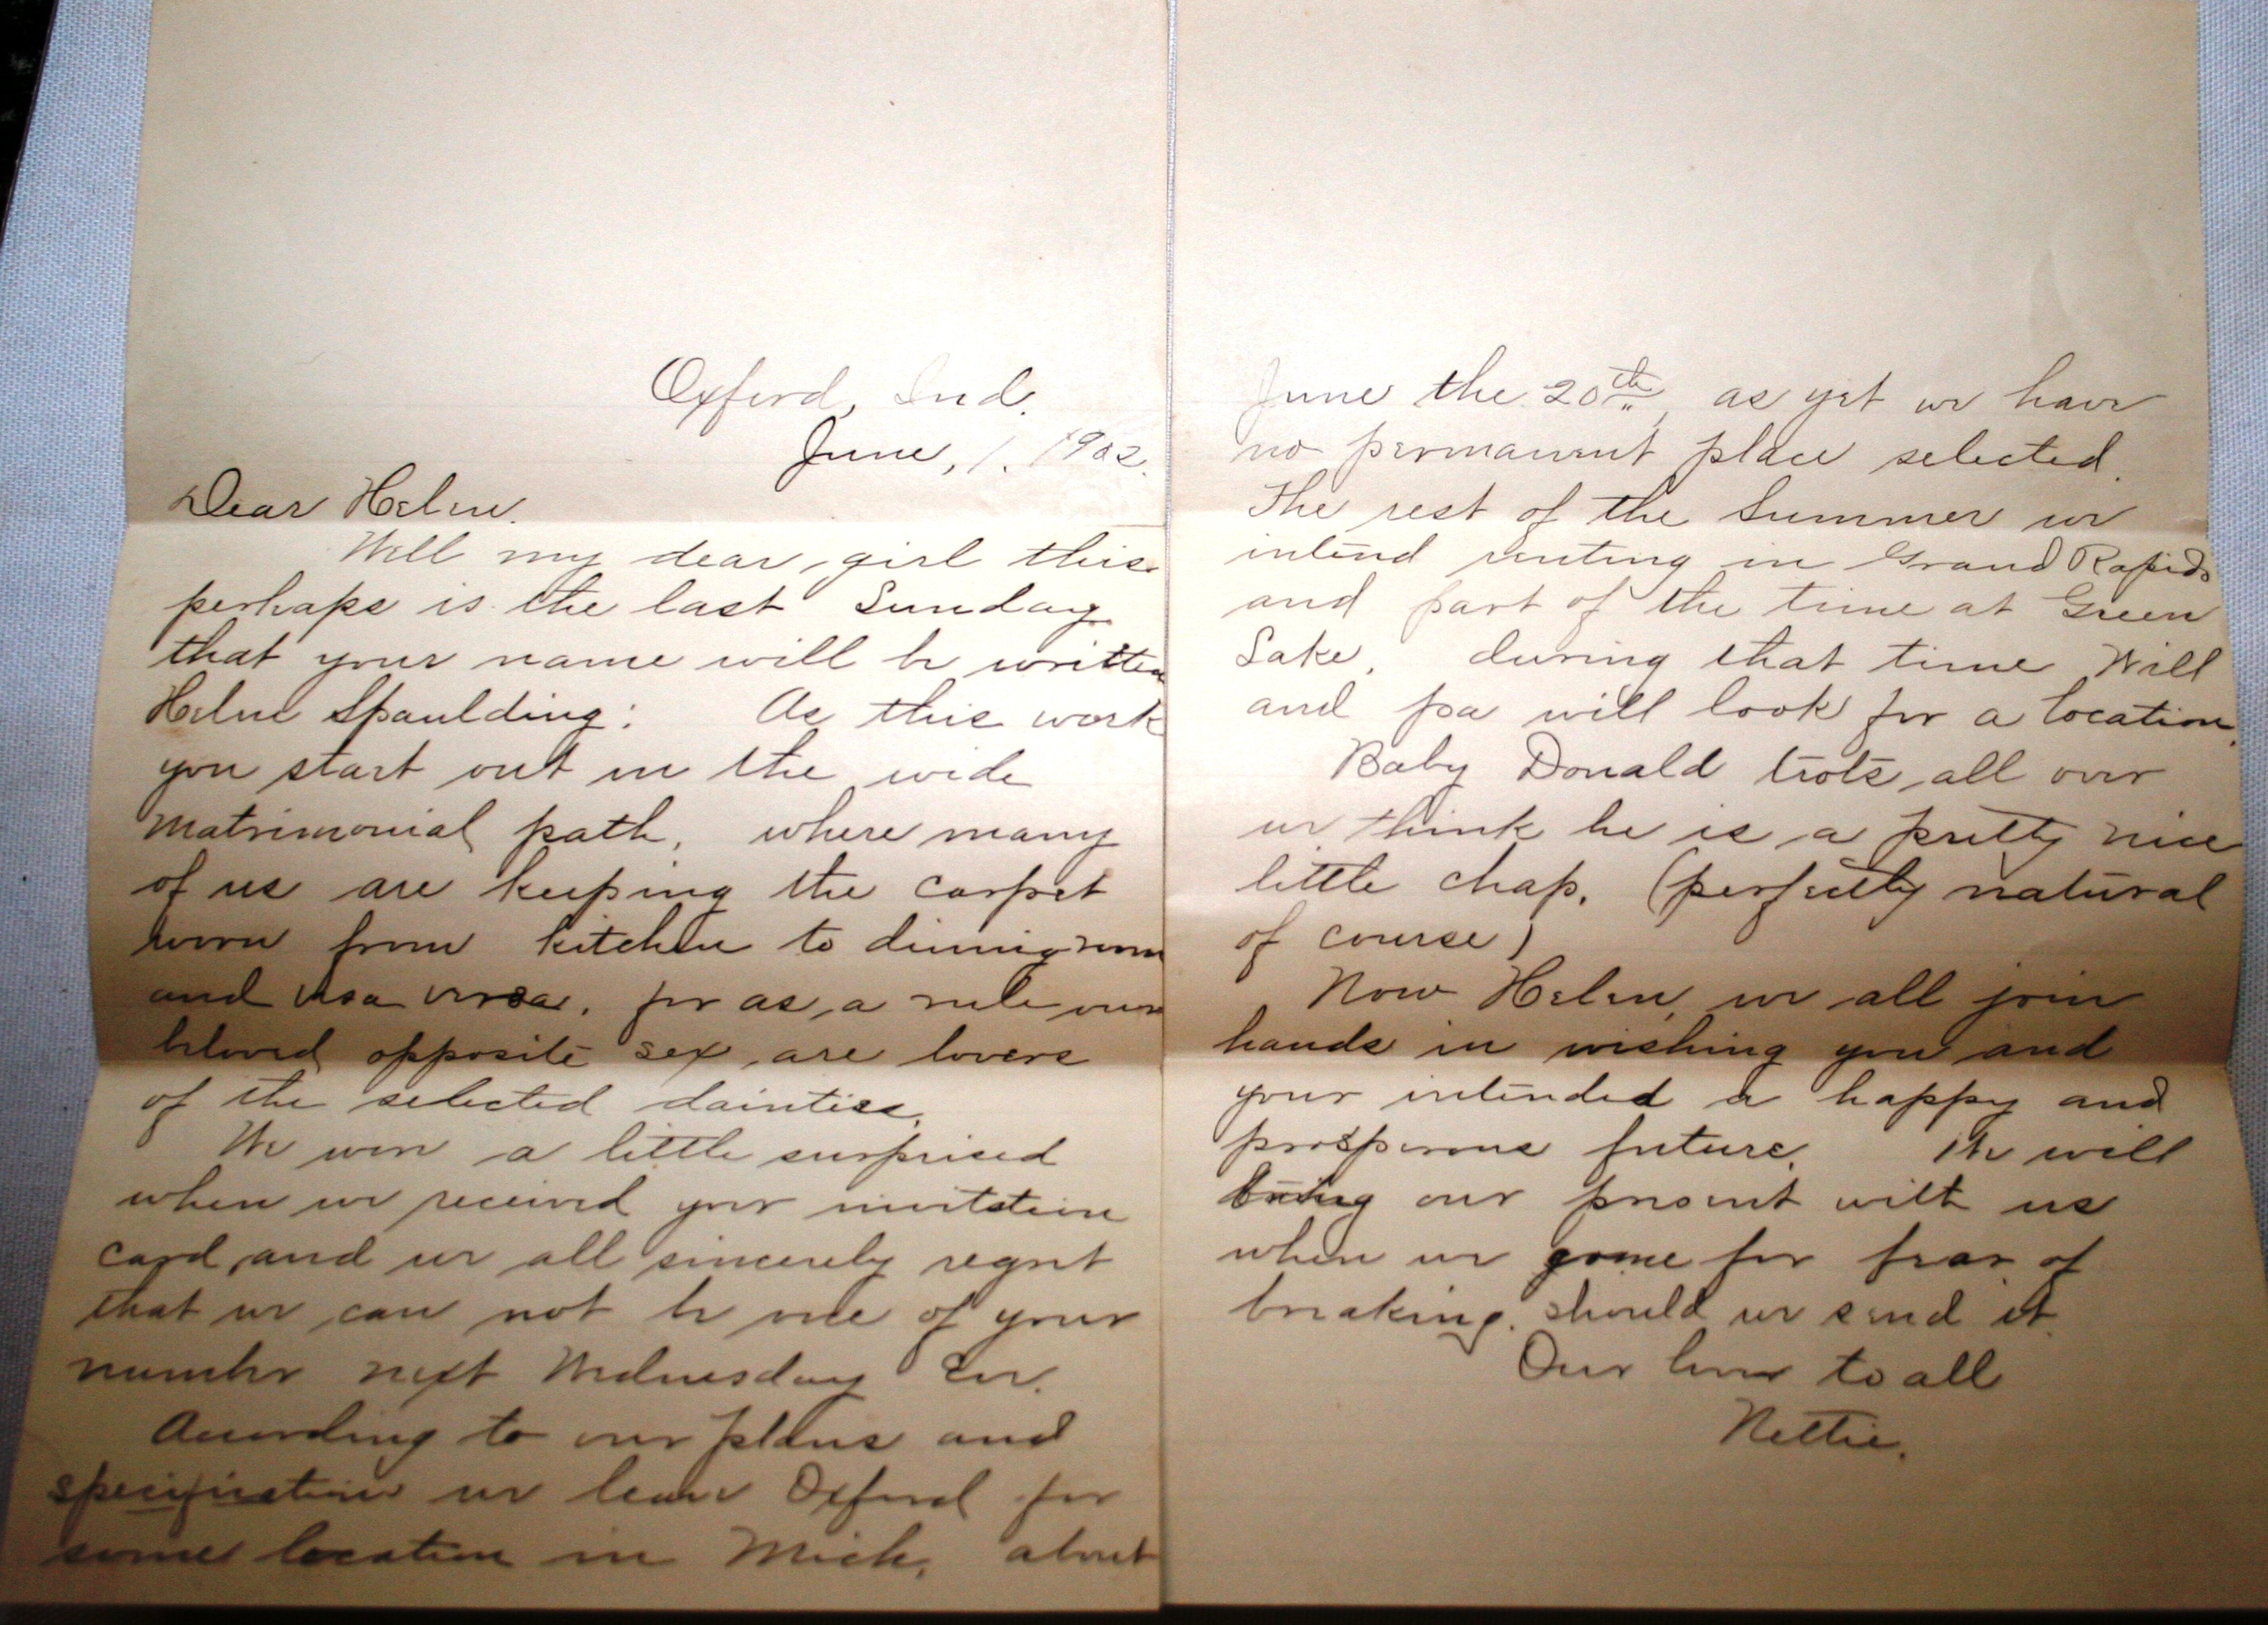 Oxford, Ind.
June, 1. 1902.
Dear Helen.
Well my dear girl this
perhaps is the last Sunday
that your name will be written
Helen Spaulding: As this work
you start out in the wide
matrimonial path, where many
of us are keeping the carpet
worn from kitchen to diningroom
and visa versa, for as a rule our
beloved opposite sex, are lovers
of the selected dainties.
We were a little surprised
when we received your invitation
card, and we all sincerely regret
that we can not be one of your
number next Wednesday Eve.
Acording to our plans and
specification we leave Oxford for
some location in Mich. about
June the 20th, as yet we have
no permanent place selected.
The rest of the Summer we
intend renting in Grand Rapids
and part of the time at Green
Lake. during that time Will
and pa will look for a location.
Baby Donald trots all over
we think he is a pretty nice
little chap. (perfectly natural
of course)
Now Helen, we all join
hands in wishing you and
your intended a happy and
prosperous future. We will
bring our present with us
when we come for fear of
breaking. should we send it.
Our love to all
Nettie.